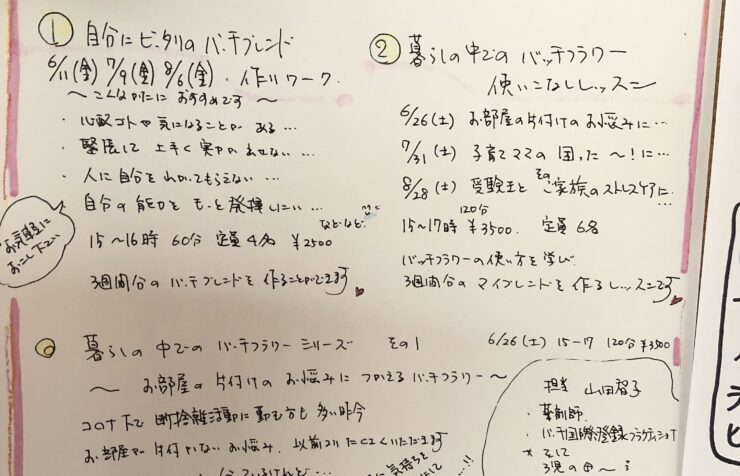 ① 自分にピッタリの バッチブレンド
6/11(金) 7/9(金) 8/6(金)・作りワーク
〜こんなかたに おすすめです〜
・心配ゴトや気になることが ある…
・緊張して 上手く 実力が出せない…
・人に自分を わかってもらえない…
・自分の能力を もっと発揮したい…
などなど。
15〜16時 60分 定員4名 ¥2500
3週間分の バッチブレンドを 作ることができます
お気軽に
おこし下さい
② 暮らしの中での バッチフラワー
使いこなしレッスン
6/26(土) お部屋の片付けの お悩みに…
7/31(土) 子育てママの 困った〜!に…
8/28(土) 受験生と そのご家族のストレスケアに…
15〜17時 120分 ¥3500. 定員 6名
バッチフラワーの使い方を学び
3週間分の マイブレンドを 作るレッスンです
暮らしの中での バッチフラワー シリーズ その1 6/26(土) 15-17 120分 ¥3500
〜 お部屋の片付けの お悩みに つかえるバッチフラワー〜
コロナ下で 断捨離活動に勤む方も多い昨今
お部屋が片付かないお悩み、以前よりたくさんいただきます
担当 山田智子
・薬剤師
・バッチ国際登録プラクティショナー
そして
3児の母〜
気持ちと